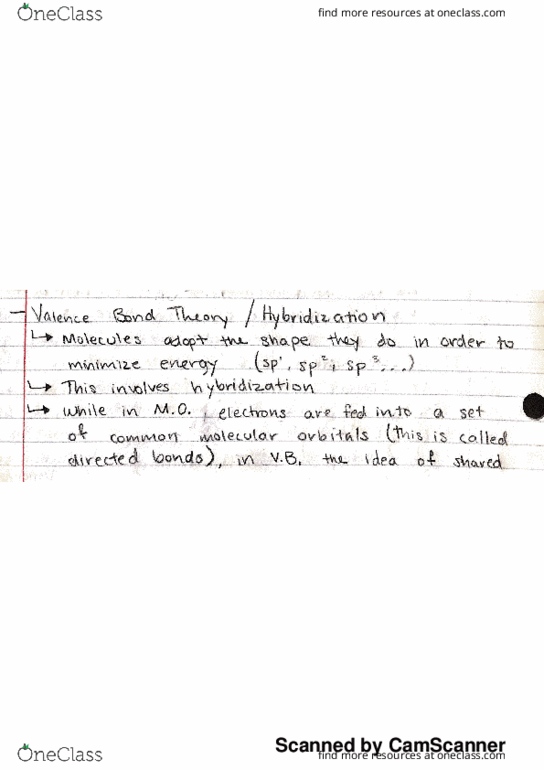 OneClass
find more resources at oneclass.com
- Valence Bond Theory / Hybridization
↳ Molecules adopt the shape they do in order to
minimize energy (sp¹, sp², sp³...)
↳ This involves hybridization
↳ While in M.O., electrons are fed into a set
of common molecular orbitals (this is called
directed bonds), in V.B. the idea of shared
Scanned by CamScanner
OneClass
find more resources at oneclass.com